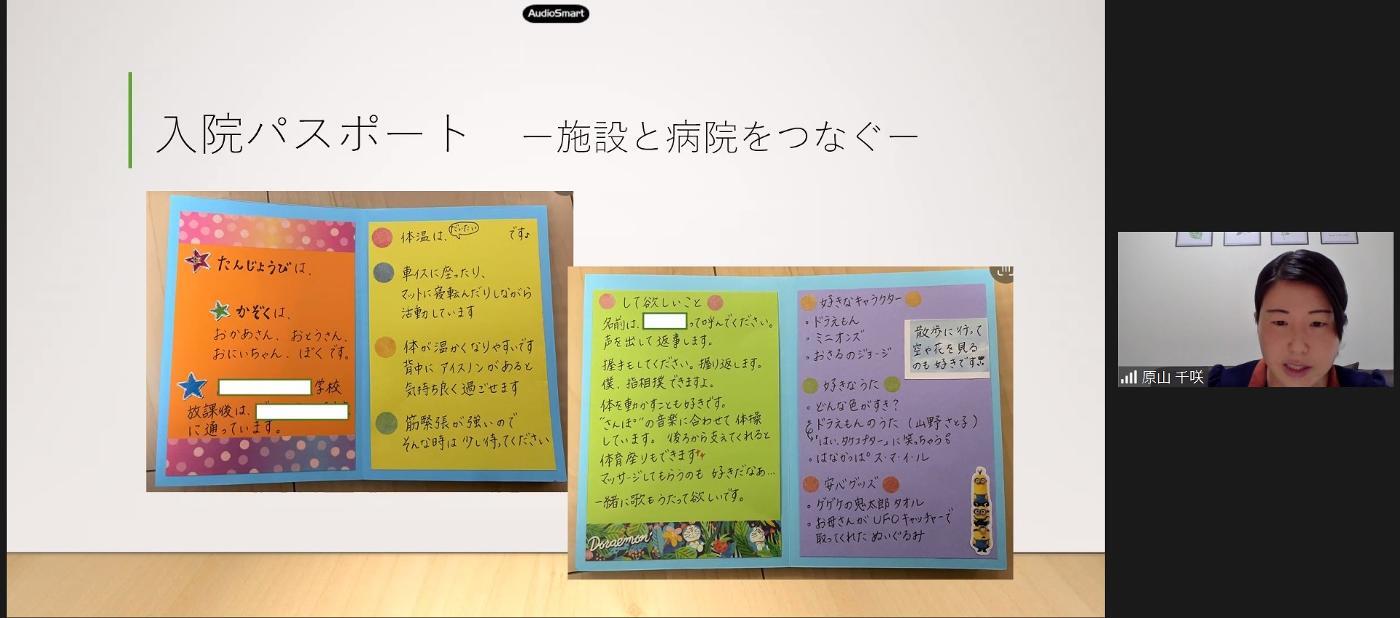 AudioSmart
入院パスポート　ー施設と病院をつなぐー
たんじょうびは、
かぞくは、
おかあさん、おとうさん、
おにいちゃん、ぼくです。
学校
放課後は、
に通っています。
体温は、だいたい です♪
車イスに座ったり、
マットに寝転んだりしながら
活動しています
体が温かくなりやすいです
背中にアイスノンがあると
気持ち良く過ごせます
筋緊張が強いので
そんな時は少し待ってください
して欲しいこと
名前は、 って呼んでください。
声を出して返事します。
握手をしてください。握り返します。
僕、指相撲できますよ。
体を動かすことも好きです。
“さんぽ”の音楽に合わせて体操
しています。後ろから支えてくれると
体育座りもできます
マッサージしてもらうのも 好きだなあ…
一緒に歌もうたって欲しいです。
Doraemon
好きなキャラクター
・ドラえもん
・ミニオンズ
・おさるのジョージ
散歩に行って
空や花を見る
のも好きです
好きなうた
・どんな色がすき?
・ドラえもんのうた(山野さと子)
“はい、タケコプター”に笑っちゃう
・はなかっぱ ス・マ・イ・ル
安心グッズ
・ゲゲゲの鬼太郎タオル
・お母さんがUFOキャッチャーで
取ってくれた ぬいぐるみ
原山 千咲